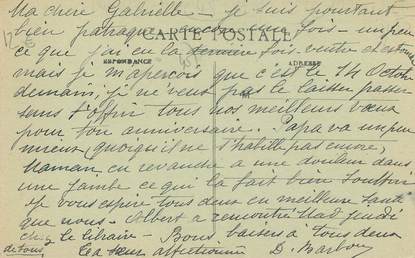 Ma chère Gabrielle – je suis pourtant
bien patraque encore cette fois – un peu
CARTE POSTALE
ce que j'ai eu la dernière fois – ventre et estomac
CORRESPONDANCE
ADRESSE
mais je m'aperçois que c'est le 14 Octobre
demain, je ne veux pas le laisser passer
sans t'offrir tous nos meilleurs vœux
pour ton anniversaire. Papa va un peu
mieux (quoiqu'il ne s'habille pas encore,
Maman en revanche a une douleur dans
une jambe ce qui la fait bien souffrir
Je vous espère tous deux en meilleure santé
que nous – Albert a rencontré Mad jeudi
chez le libraire – Bons baisers à tous deux
de tous
ta sœur affectionnée D. Barbou